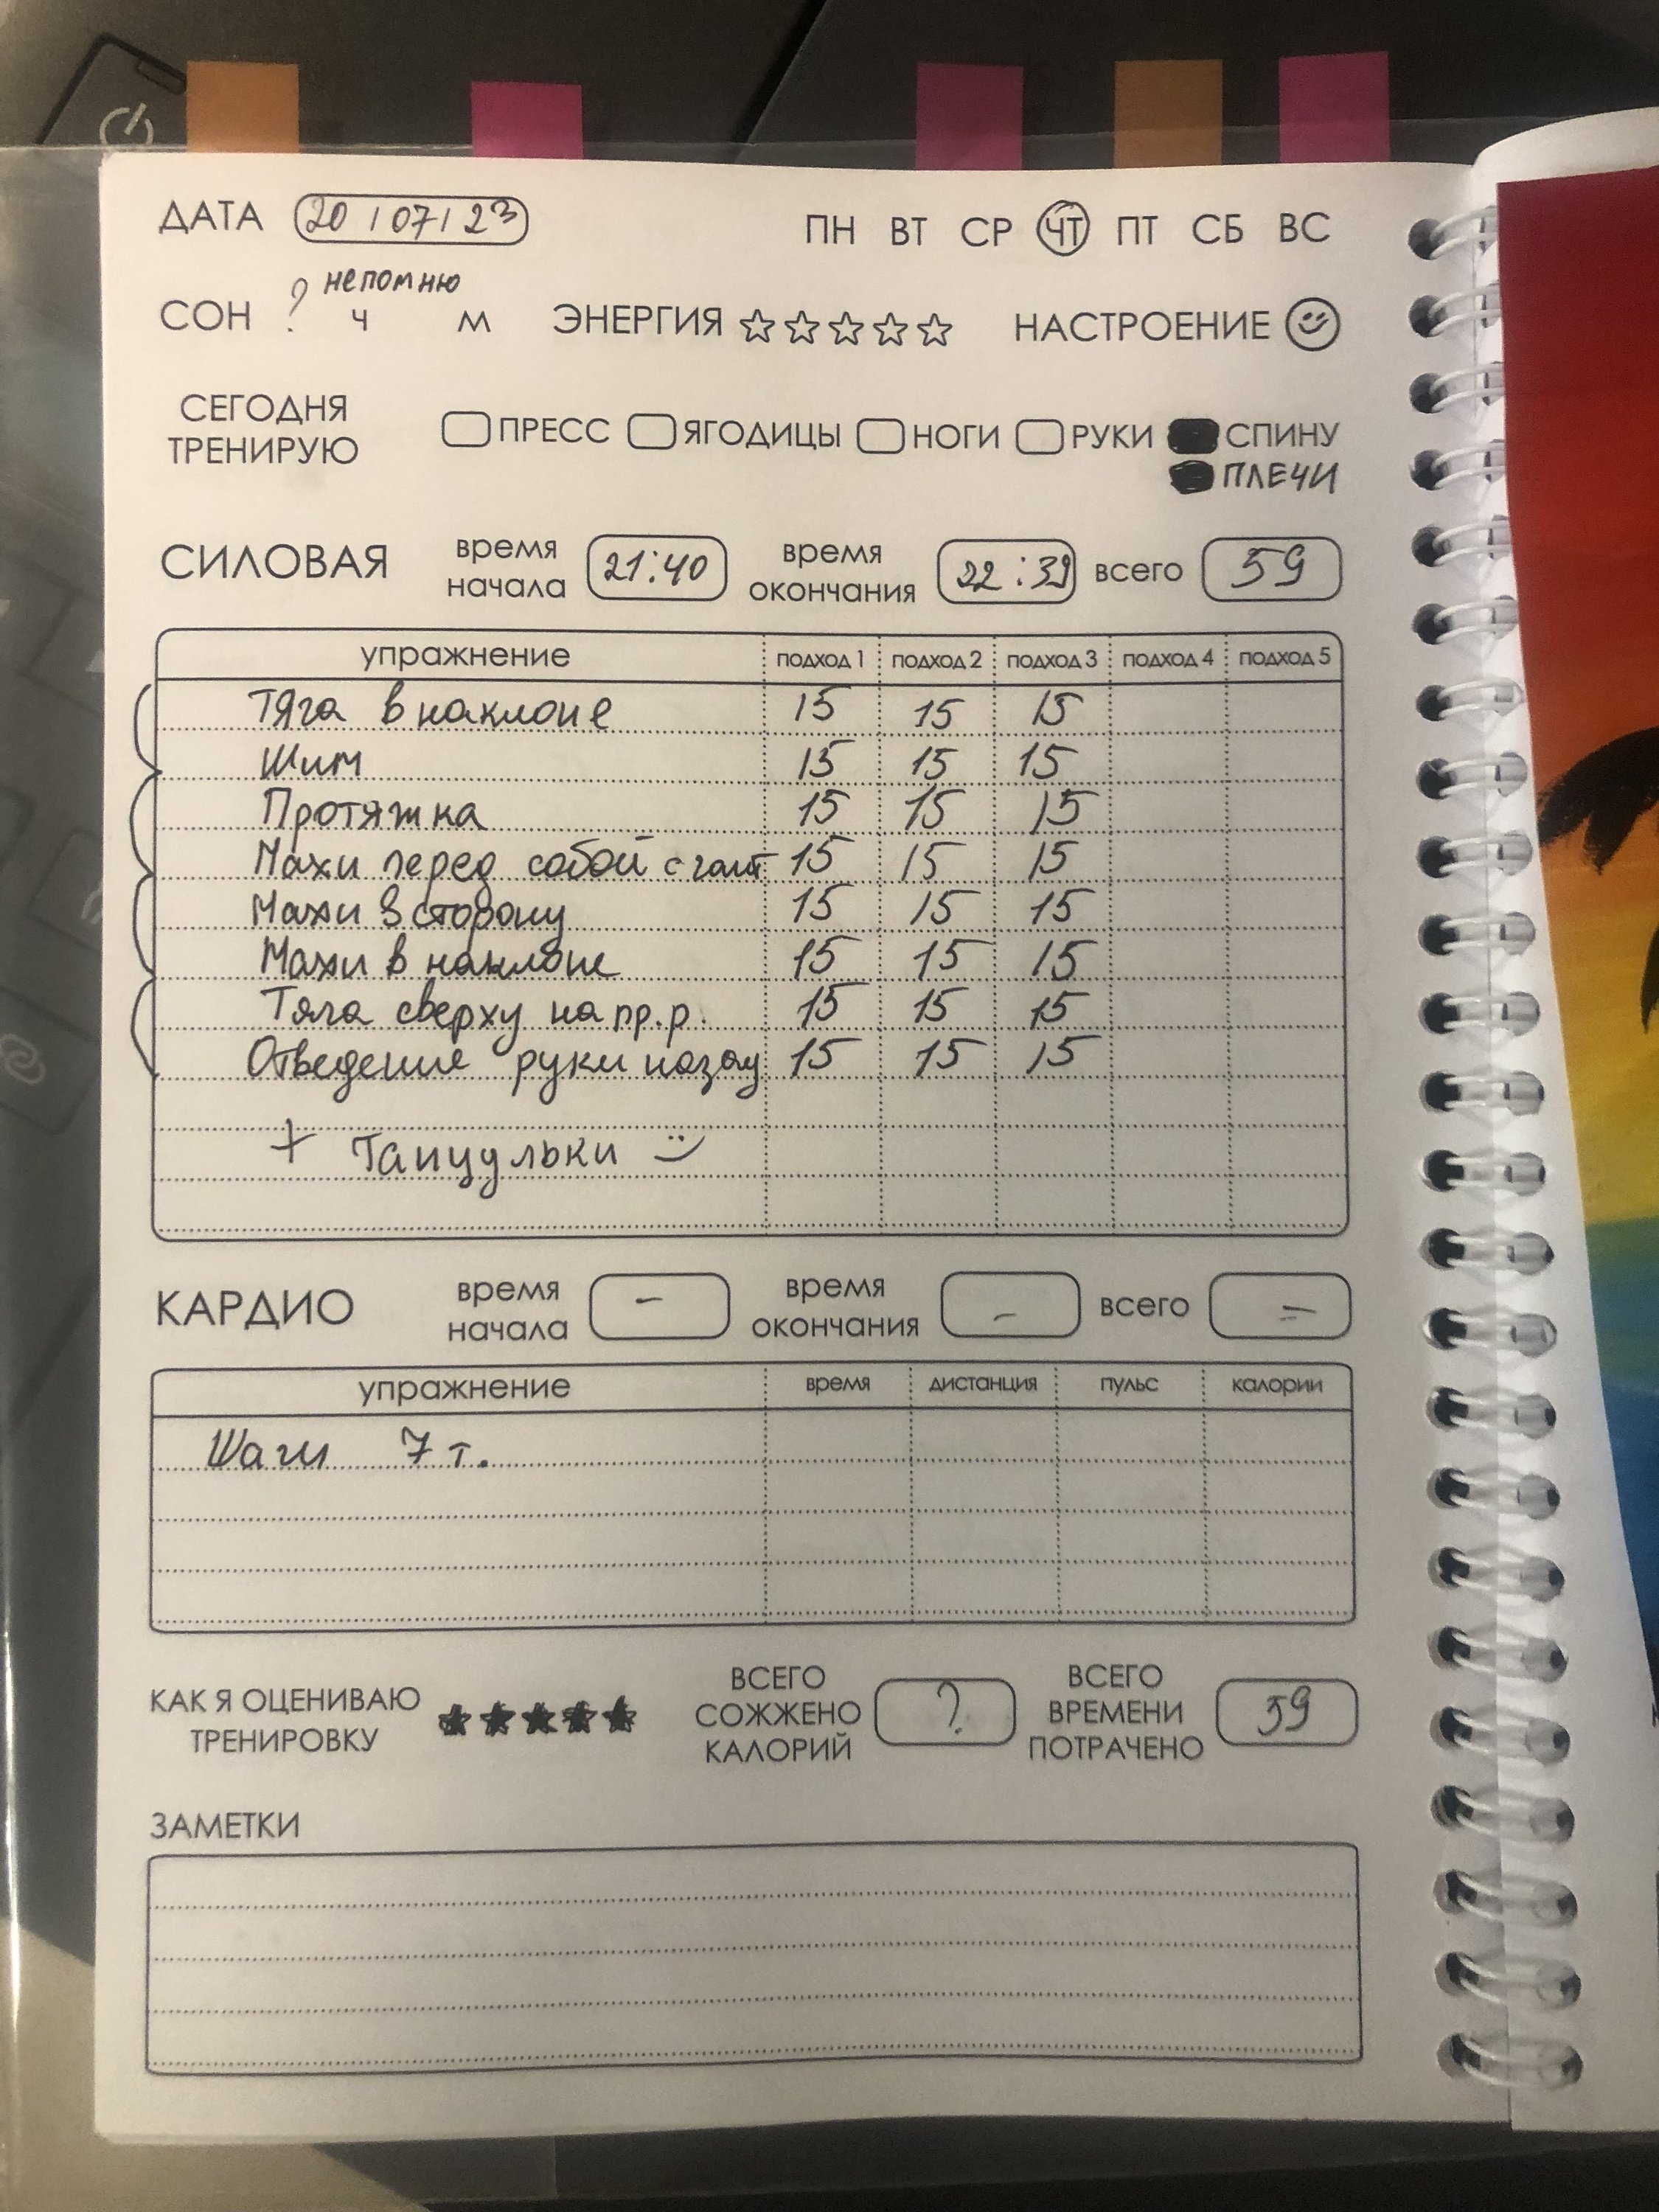 ДАТА 20/07/23 ПН ВТ СР ЧТ ПТ СБ ВС
непомню
СОН ? Ч М ЭНЕРГИЯ НАСТРОЕНИЕ
СЕГОДНЯ
ТРЕНИРУЮ
ПРЕСС ЯГОДИЦЫ НОГИ РУКИ СПИНУ
ПЛЕЧИ
СИЛОВАЯ время начала 21:40 время окончания 22:39 всего 59
упражнение подход 1 подход 2 подход 3 подход 4 подход 5
Тяга в наклоне 15 15 15
Жим 15 15 15
Протяжка 15 15 15
Махи перед собой с гант 15 15 15
Махи в сторону 15 15 15
Махи в наклоне 15 15 15
Тяга сверху на пр.р. 15 15 15
Отведение руки назад 15 15 15
+ Танцульки
КАРДИО время начала – время окончания – всего =
упражнение время дистанция пульс калории
Шаги 7 т.
КАК Я ОЦЕНИВАЮ
ТРЕНИРОВКУ
ВСЕГО
СОЖЖЕНО
КАЛОРИЙ
?
ВСЕГО
ВРЕМЕНИ
ПОТРАЧЕНО
59
ЗАМЕТКИ